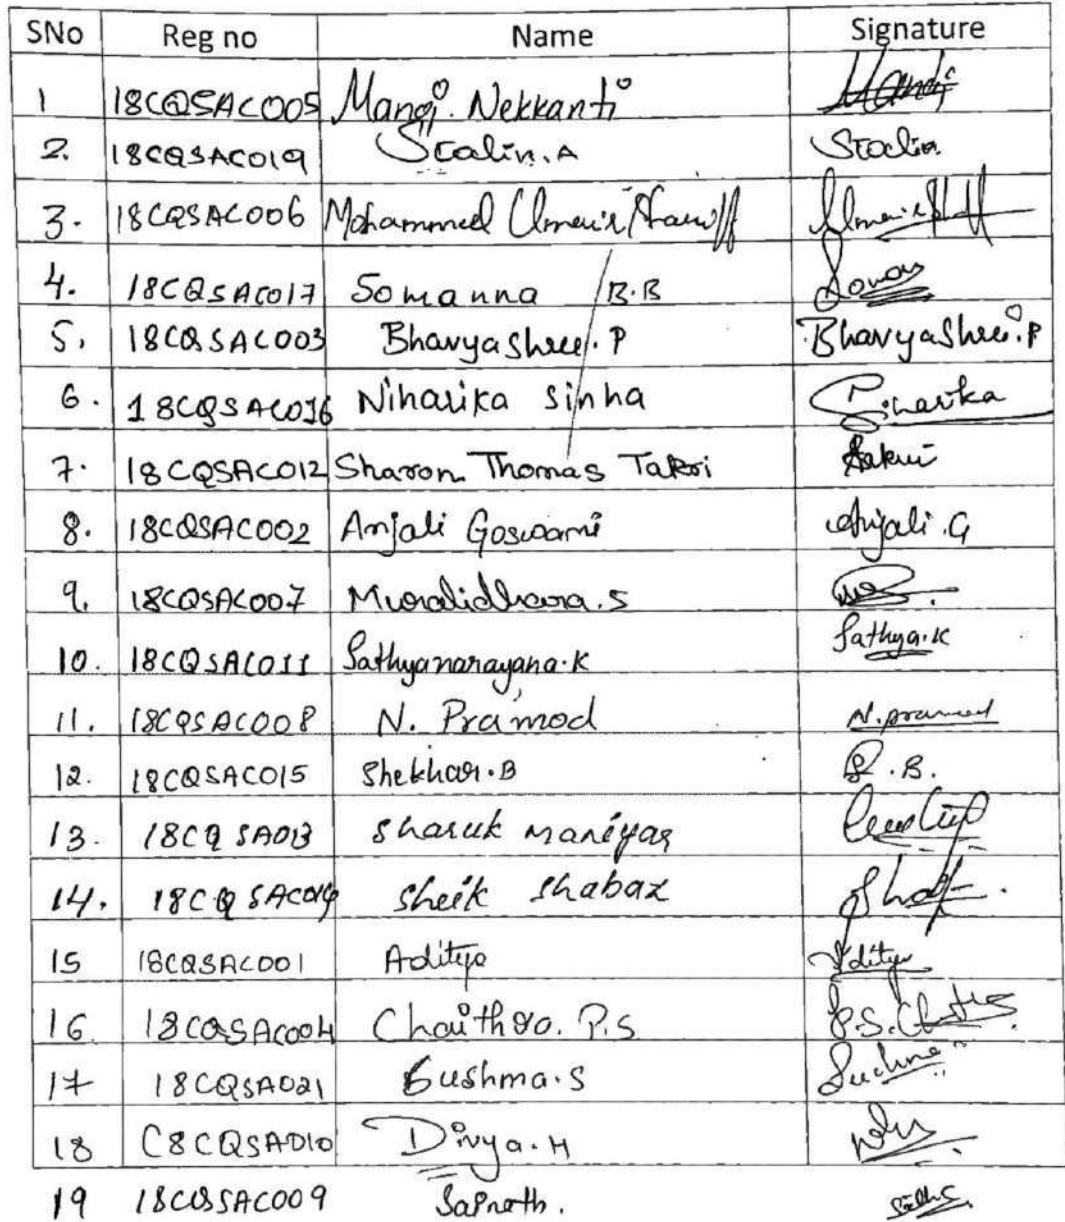 SNo Reg no Name Signature
1 18CQSAC005 Mangi. Nekkanti
2. 18CQSAC019 Stalin.A Stalin
3. 18CQSAC006 Mohammed Umair Shariff
4. 18CQSAC017 Somanna B.B
5. 18CQSAC003 Bhavyashree.P Bhavyashree.P
6. 18CQSAC016 Niharika Sinha Niharika
7. 18CQSAC012 Sharon Thomas Takri Takri
8. 18CQSAC002 Anjali Goswami Anjali.G
9. 18CQSAC007 Muralidhara.S
10. 18CQSAC011 Sathyanarayana.K Sathya.K
11. 18CQSAC008 N. Pramod N.pramod
12. 18CQSAC015 Shekhar.B S.B.
13. 18CQSA013 Sharuk maniyar
14. 18CQSAC014 Sheik Shabaz
15 18CQSAC001 Aditya Aditya
16 18CQSAC004 Chaithra. P.S
17 18CQSA021 Sushma.S
18 C8CQSA010 Divya.H
19 18CQSSAC009